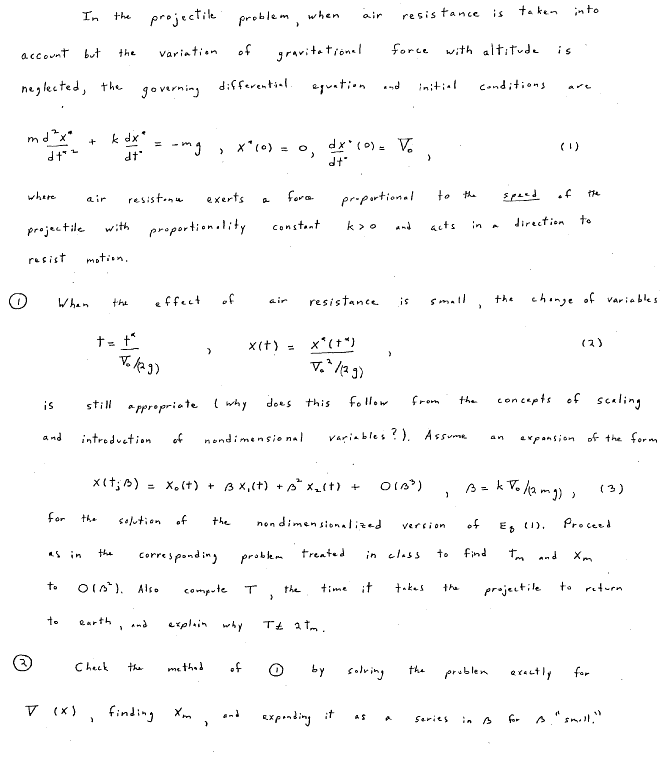 In the projectile problem, when air resistance is taken into
account but the variation of gravitational force with altitude is
neglected, the governing differential equation and initial conditions are
m d²x*/dt*² + k dx*/dt* = -mg , x*(0) = 0, dx*/dt* (0) = V₀ , (1)
where air resistance exerts a force proportional to the speed of the
projectile with proportionality constant k>0 and acts in a direction to
resist motion.
① When the effect of air resistance is small, the change of variables
t = t*/(V₀/(2g)) , x(t) = x*(t*)/(V₀²/(2g)) , (2)
is still appropriate (why does this follow from the concepts of scaling
and introduction of nondimensional variables?). Assume an expansion of the form
x(t;β) = x₀(t) + βx₁(t) + β²x₂(t) + O(β³) , β = kV₀/(2mg) , (3)
for the solution of the nondimensionalized version of Eq (1). Proceed
as in the corresponding problem treated in class to find tm and xm
to O(β²). Also compute T, the time it takes the projectile to return
to earth, and explain why T≠ 2tm.
② Check the method of ① by solving the problem exactly for
V(x), finding xm, and expanding it as a series in β for β "small."